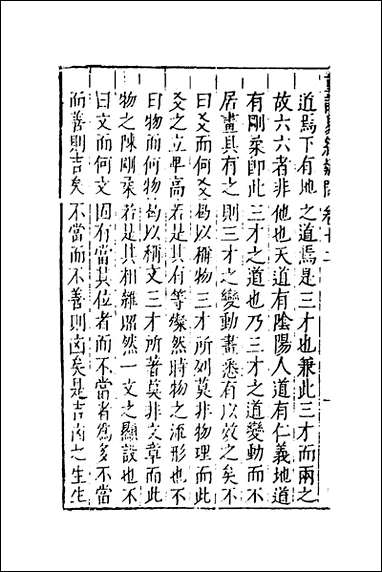 重訂易經疑問 卷十二
道焉下有地之道焉是三才也兼此三才而兩之
故六六者非他也天道有陰陽人道有仁義地道
有剛柔即此三才之道也乃三才之道變動而不
居畫具有之則三才之變動畫悉有以效之矣不
曰爻而何爻曷以稱物三才所列莫非物理而此
爻之立卑高若是其有等燦然時物之流形也不
曰物而何物曷以稱文三才所著莫非文章而此
物之陳剛柔若是其相雜炤然一文之顯設也不
曰文而何文因有當其位者而不當者為多不當
而善則吉矣不當而不善則凶矣是吉凶之生生